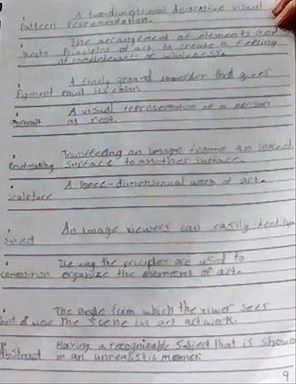 A two-dimensional decorative visual
pattern representation.
The arrangement of elements and
principles of art to create a feeling
of completeness or wholeness.
A finely ground powder that gives
pigment paint its color.
A visual representation of a person
at rest.
Transferring an image from an inked
printmaking surface to another surface.
A three-dimensional work of art.
sculpture
An image viewers can easily identify
subject
The way the principles are used to
composition organize the elements of art.
The angle from which the viewer sees
point of view the scene in an artwork.
Having a recognizable subject that is shown
abstract in an unrealistic manner.
9